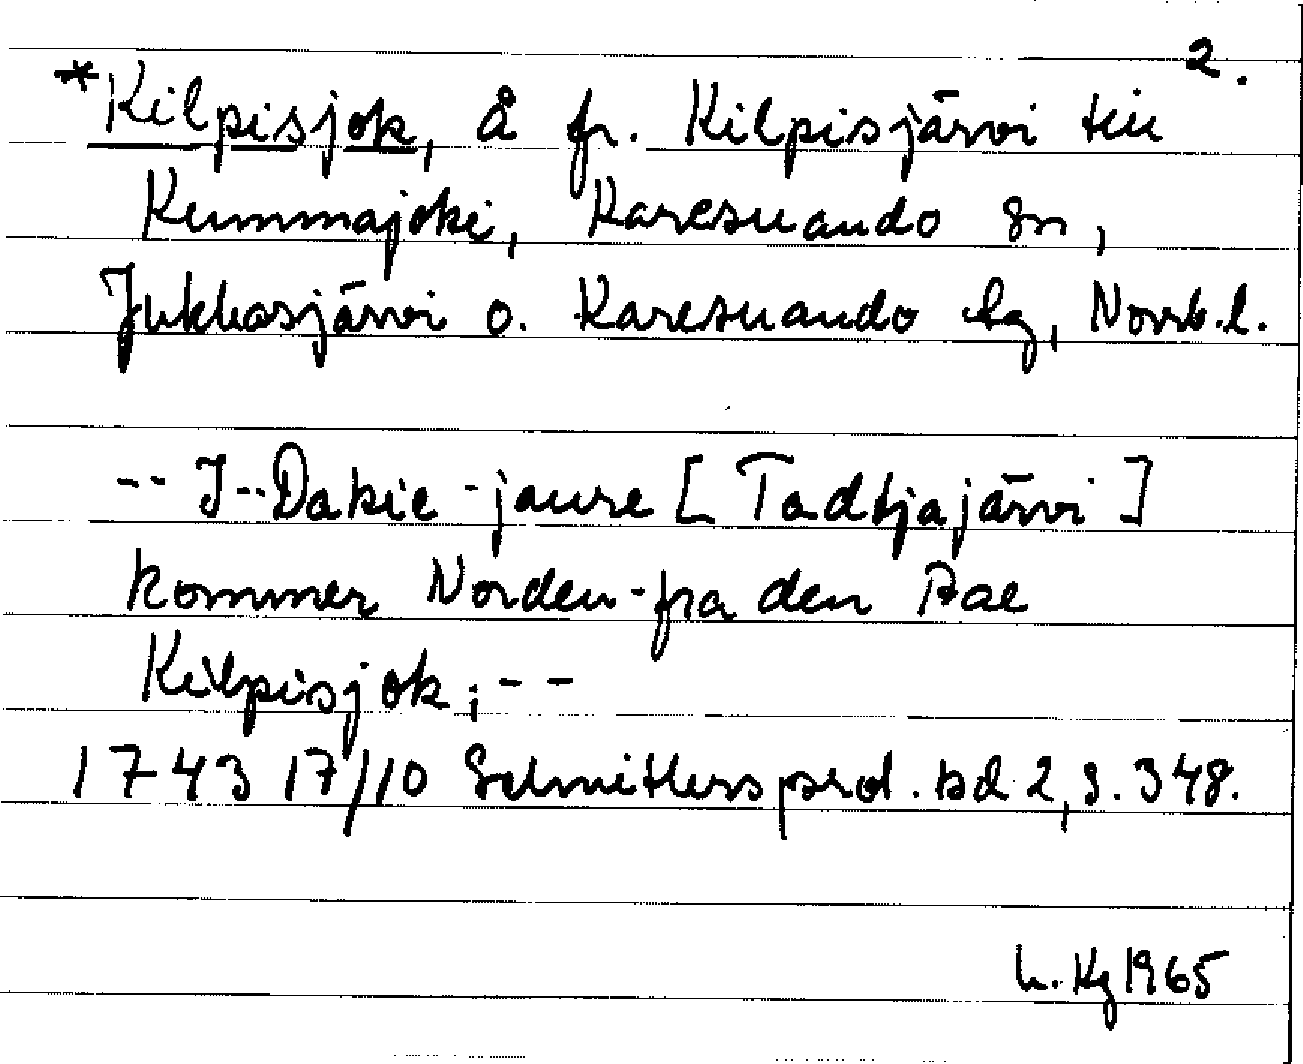 2.
*Kilpisjok, å fr. Kilpisjärvi till
Kummajoki, Karesuando sn,
Jukkasjärvi o. Karesuando lg, Norrb.l.
-- I--Dakie-jaure [Tadtjajärvi]
kommer Norden-fra den Aae
Kilpisjok; --
1743 17/10 Schnitlers prot. bd 2, s. 348.
h. Kg 1965